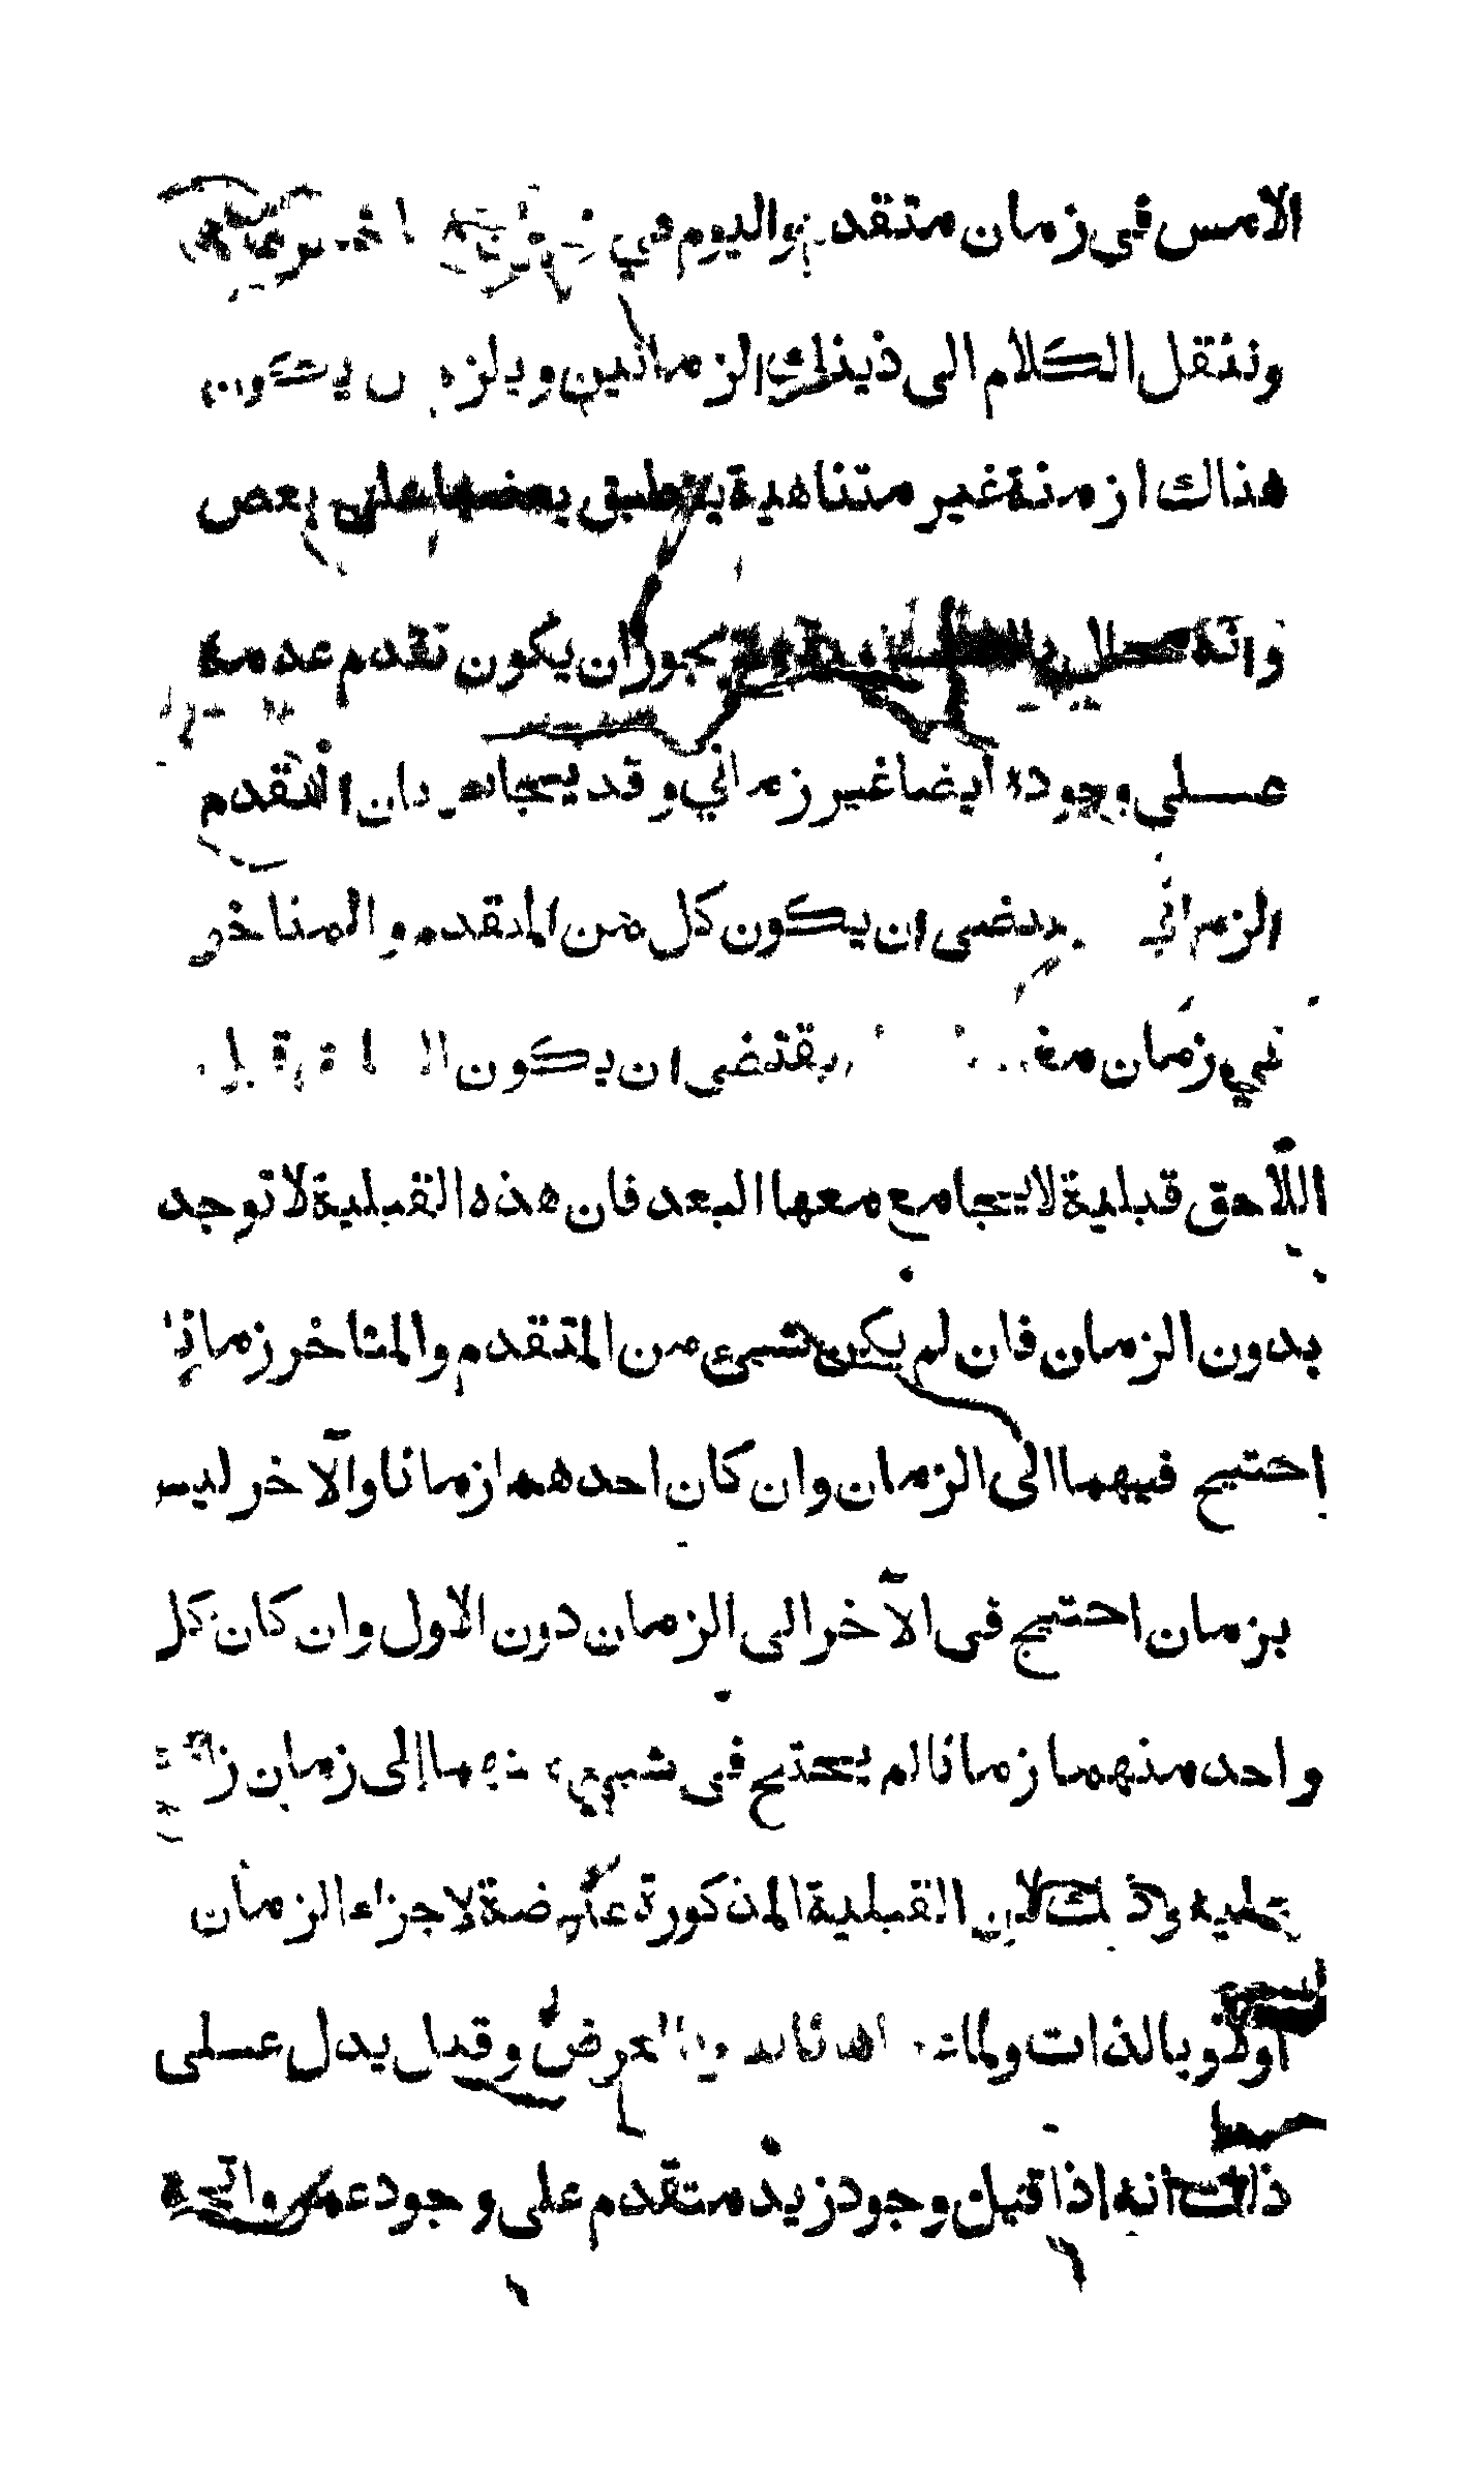 الامس في زمان متقدم واليوم في
وننقل الكلام الى ذينك الزمانين ويلزم ان يكون
هناك ازمنة غير متناهية ينطبق بعضها على بعض
وانه محال يجوز ان يكون تقدم عدمه
على وجوده ايضا غير زماني وقد يجاب بان التقدم
الزماني يقتضى ان يكون كل من المتقدم والمتاخر
في زمان يقتضى ان يكون
اللّاحق قبلية لا يتجامع معها البعد فان هذه القبلية لا توجد
بدون الزمان فان لم يكن شيء من المتقدم والمتاخر زمانا
احتيج فيهما الى الزمان وان كان احدهما زمانا والآخر ليس
بزمان احتيج في الآخر الى الزمان دون الاول وان كان كل
واحد منهما زمانا لم يحتج في شيء منهما إلى زمان
عليه وذلك لان القبلية المذكورة عارضة لاجزاء الزمان
اولا وبالذات ولما ثانيا وبالعرض وقد يدل على
ذلك انه اذا قيل وجود زيد متقدم على وجود عمرو اتجه